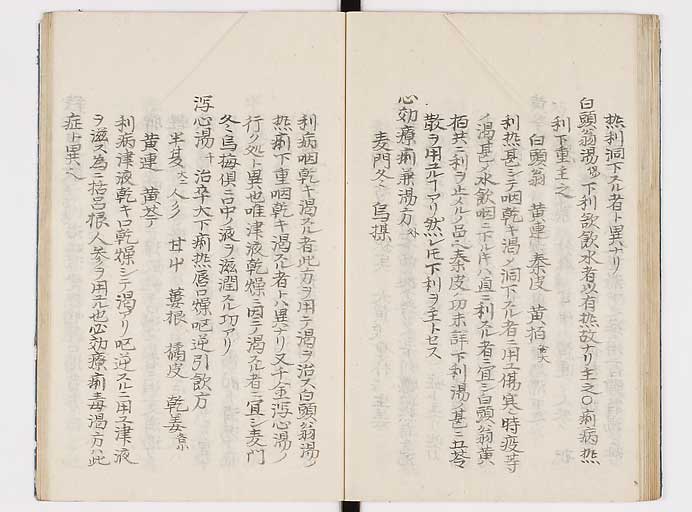 热利洞下スル者ト異ナリ
白頭翁湯 下利欲飲水者以有热故ナリ主之〇痢病热
利下重主之
白頭翁 黄連 秦皮 黄栢
利热甚シテ咽乾キ渇メ洞下スル者ニ用ユ傷寒時疫等
ノ渇甚ク水飲咽ニ下レハ直ニ利スル者ニ宜シ白頭翁黄
栢共ニ利ヲ止メルノ品ニ秦皮ノ功未詳下利渇甚ニ五苓
散ヲ用ユルアリ然レ𪜈下利ヲ主トセス
心効療痢兼渇方
麦門冬 烏梅
利病咽乾キ渇スル者此方ヲ用テ渇ヲ治ス白頭翁湯ノ
热痢下重咽乾キ渇スル者トハ異ナリ又千金瀉心湯ノ
行ク処ト異也唯津液乾燥ニ因テ渇スル者ニ宜シ麦門
冬烏梅俱ニ口中ノ液ヲ滋潤スル功アリ
瀉心湯 千 治卒大下痢热唇口燥呕逆引飲方
半夏 人参 甘艸 蔞根 橘皮 乾姜
黄連 黄芩
利病津液乾キ口乾燥シテ渇アリ呕逆スルニ用ユ津液
ヲ滋ス為ニ括呂根人参ヲ用ル也必効療痢毒渇方ハ此
症ト異ニ